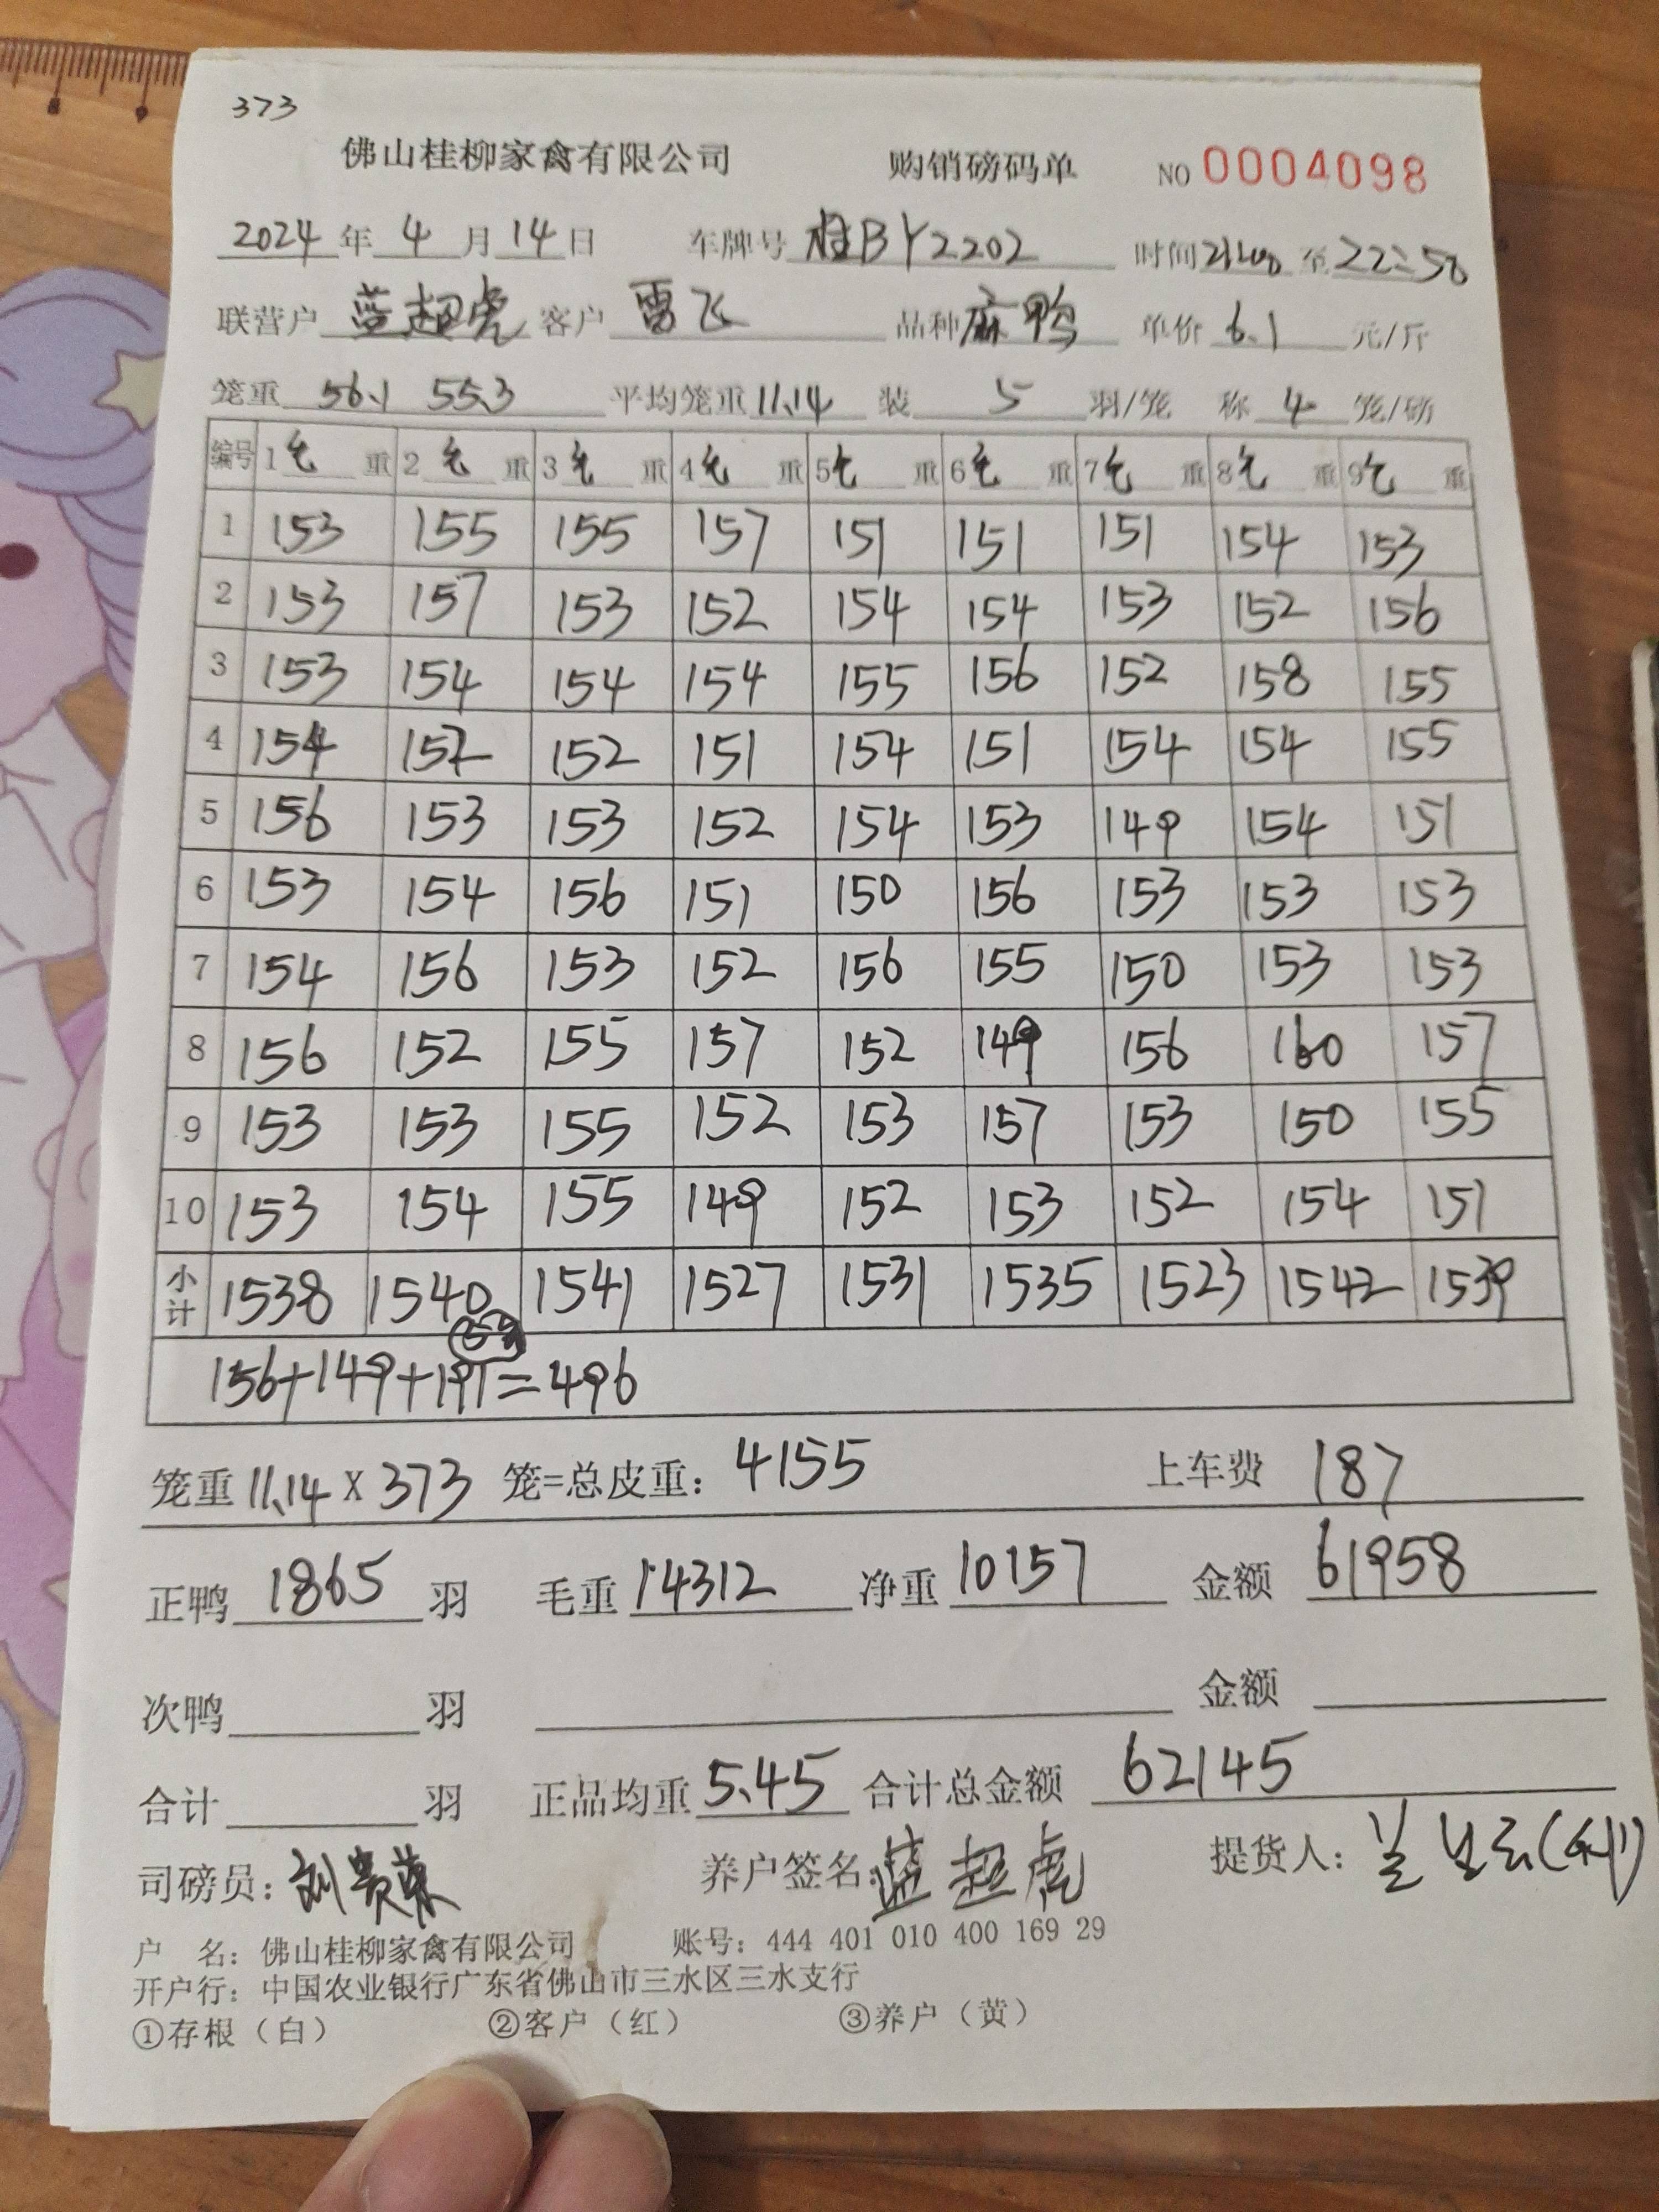 373
佛山桂柳家禽有限公司 购销磅码单 NO 0004098
2024 年 4 月 14 日 车牌号 桂BY2202 时间 21:00 至 22:50
联营户 蓝超虎 客户 雷飞 品种 麻鸭 单价 6.1 元/斤
笼重 56.1 55.3 平均笼重 11.14 装 5 羽/笼 称 4 笼/磅
编号 1 毛 重 2 毛 重 3 毛 重 4 毛 重 5 毛 重 6 毛 重 7 毛 重 8 毛 重 9 毛 重
1 153 155 155 157 151 151 151 154 153
2 153 157 153 152 154 154 153 152 156
3 153 154 154 154 155 156 152 158 155
4 154 152 152 151 154 151 154 154 155
5 156 153 153 152 154 153 149 154 151
6 153 154 156 151 150 156 153 153 153
7 154 156 153 152 156 155 150 153 153
8 156 152 155 157 152 149 156 160 157
9 153 153 155 152 153 157 153 150 155
10 153 154 155 149 152 153 152 154 151
小计 1538 1540 1541 1527 1531 1535 1523 1542 1539
156+149+191=496
笼重 11.14 X 373 笼=总皮重： 4155 上车费 187
正鸭 1865 羽 毛重 14312 净重 10157 金额 61958
次鸭 羽 金额
合计 羽 正品均重 5.45 合计总金额 62145
司磅员： 刘贵荣 养户签名： 蓝超虎 提货人：
户 名：佛山桂柳家禽有限公司 账号：444 401 010 400 169 29
开户行：中国农业银行广东省佛山市三水区三水支行
①存根（白） ②客户（红） ③养户（黄）